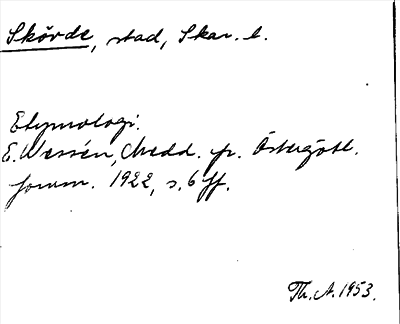 Skövde, stad, Skar. l.
Etymologi.
E. Wessén, Medd. fr. Östergötl.
fornm. 1922, s. 6 ff.
Th. A. 1953.